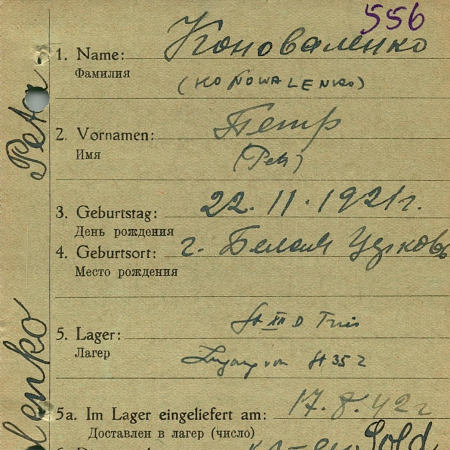 556
1. Name: Коноваленко
Фамилия
(KONOWALENKO)
2. Vornamen: Петр
Имя
(Petr)
3. Geburtstag: 22.11.1921г.
День рождения
4. Geburtsort: г. Белая Церковь
Место рождения
5. Lager: St XII D Trier
Лагер
Zugang von St 352
5a. Im Lager eingeliefert am: 17.8.42г
Доставлен в лагер (число)
Sold
Peta
lenko